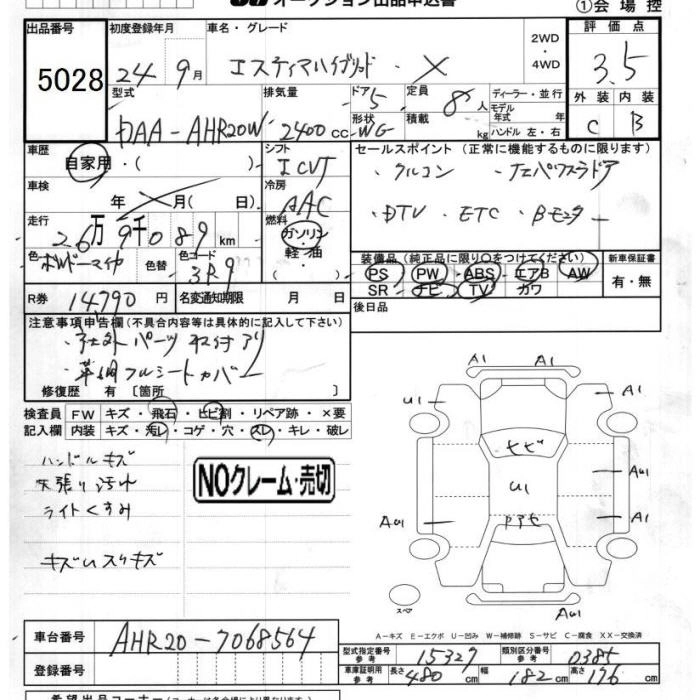 オークション出品申込書
①会場控
出品番号 初度登録年月 車名・グレード 2WD・4WD 評価点
5028 24年9月 エスティマハイブリッド・X 3.5
型式 排気量 ドア 定員 ディーラー・並行 外装 内装
DAA-AHR20W 2400cc 5 8人 モデル年式 年式 C B
形状 WG 積載 kg ハンドル 左・右
車歴 シフト セールスポイント (正常に機能するものに限ります)
自家用・( )・ ICVT ・クルコン ・左右パワスラドア
車検 年 月( 日) 冷房 AAC ・DTV ・ETC ・Bモニター
走行 26万9千089km 燃料 ガソリン・軽油
装備品 (純正品に限り○をつけてください) 新車保証書
色 色替 色コード 3R9 PS PW ABS エアB AW 有・無
SR ナビ TV カワ
R券 14,790円 名変通知期限 月 日 後日品
注意事項申告欄 (不具合内容等は具体的に記入して下さい)
・社外パーツ取付アリ
・革調フルシートカバー
修復歴 有 [箇所 ]
検査員 FW キズ・飛石・ヒビ割・リペア跡・×要
記入欄 内装 キズ・汚レ・コゲ・穴・スレ・キレ・破レ
ハンドルキズ
天張り汚れ
ライトくすみ
キズUスリキズ
NOクレーム・売切
A1 A1
U1 A1
ヒビ
U1 AU1
AU1 A1
スペア AU1
A-キズ E-エクボ U-凹み W-補修跡 S-サビ C-腐食 XX-交換済
車台番号 AHR20-7068564
登録番号
型式指定番号 参考 15327 類別区分番号 参考 0385
車庫証明用 参考 長さ 480cm 幅 182cm 高さ 176cm
希望出品コーナー